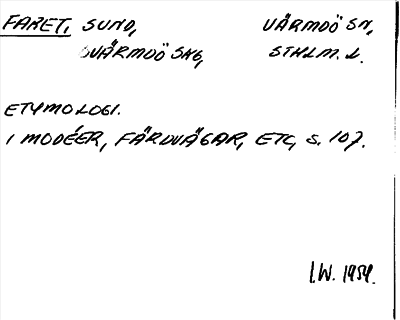 FARET, SUND, VÄRMDÖ SN,
VÄRMDÖ SKG, STHLM. L.
ETYMOLOGI.
I MODÉER, FÄRDVÄGAR, ETC, S. 107.
I.W. 1954.